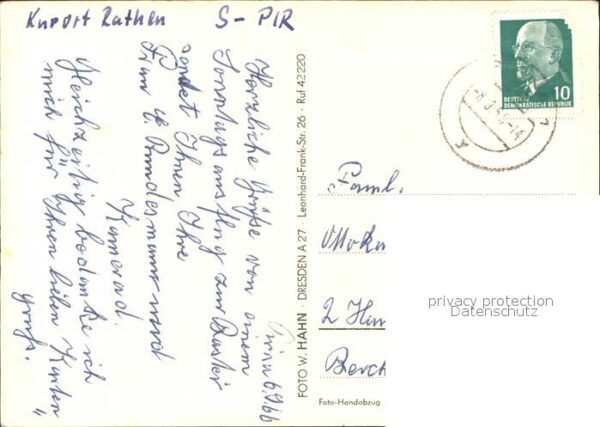 Kurort Rathen S - PIR
Pirna 6.9.66
Herzliche Grüße von einem
Sonntagsausflug zur Bastei
sendet Ihnen Ihre
Frau
Kamerad.
Gleichzeitig bedanke ich
mich für Ihren lieben Karten
gruß.
FOTO W. HAHN · DRESDEN A 27 · Leonhard-Frank-Str. 26 · Ruf 42220
10
DEUTSCHE
DEMOKRATISCHE REPUBLIK
Faml.
2
Foto-Handabzug
privacy protection
Datenschutz